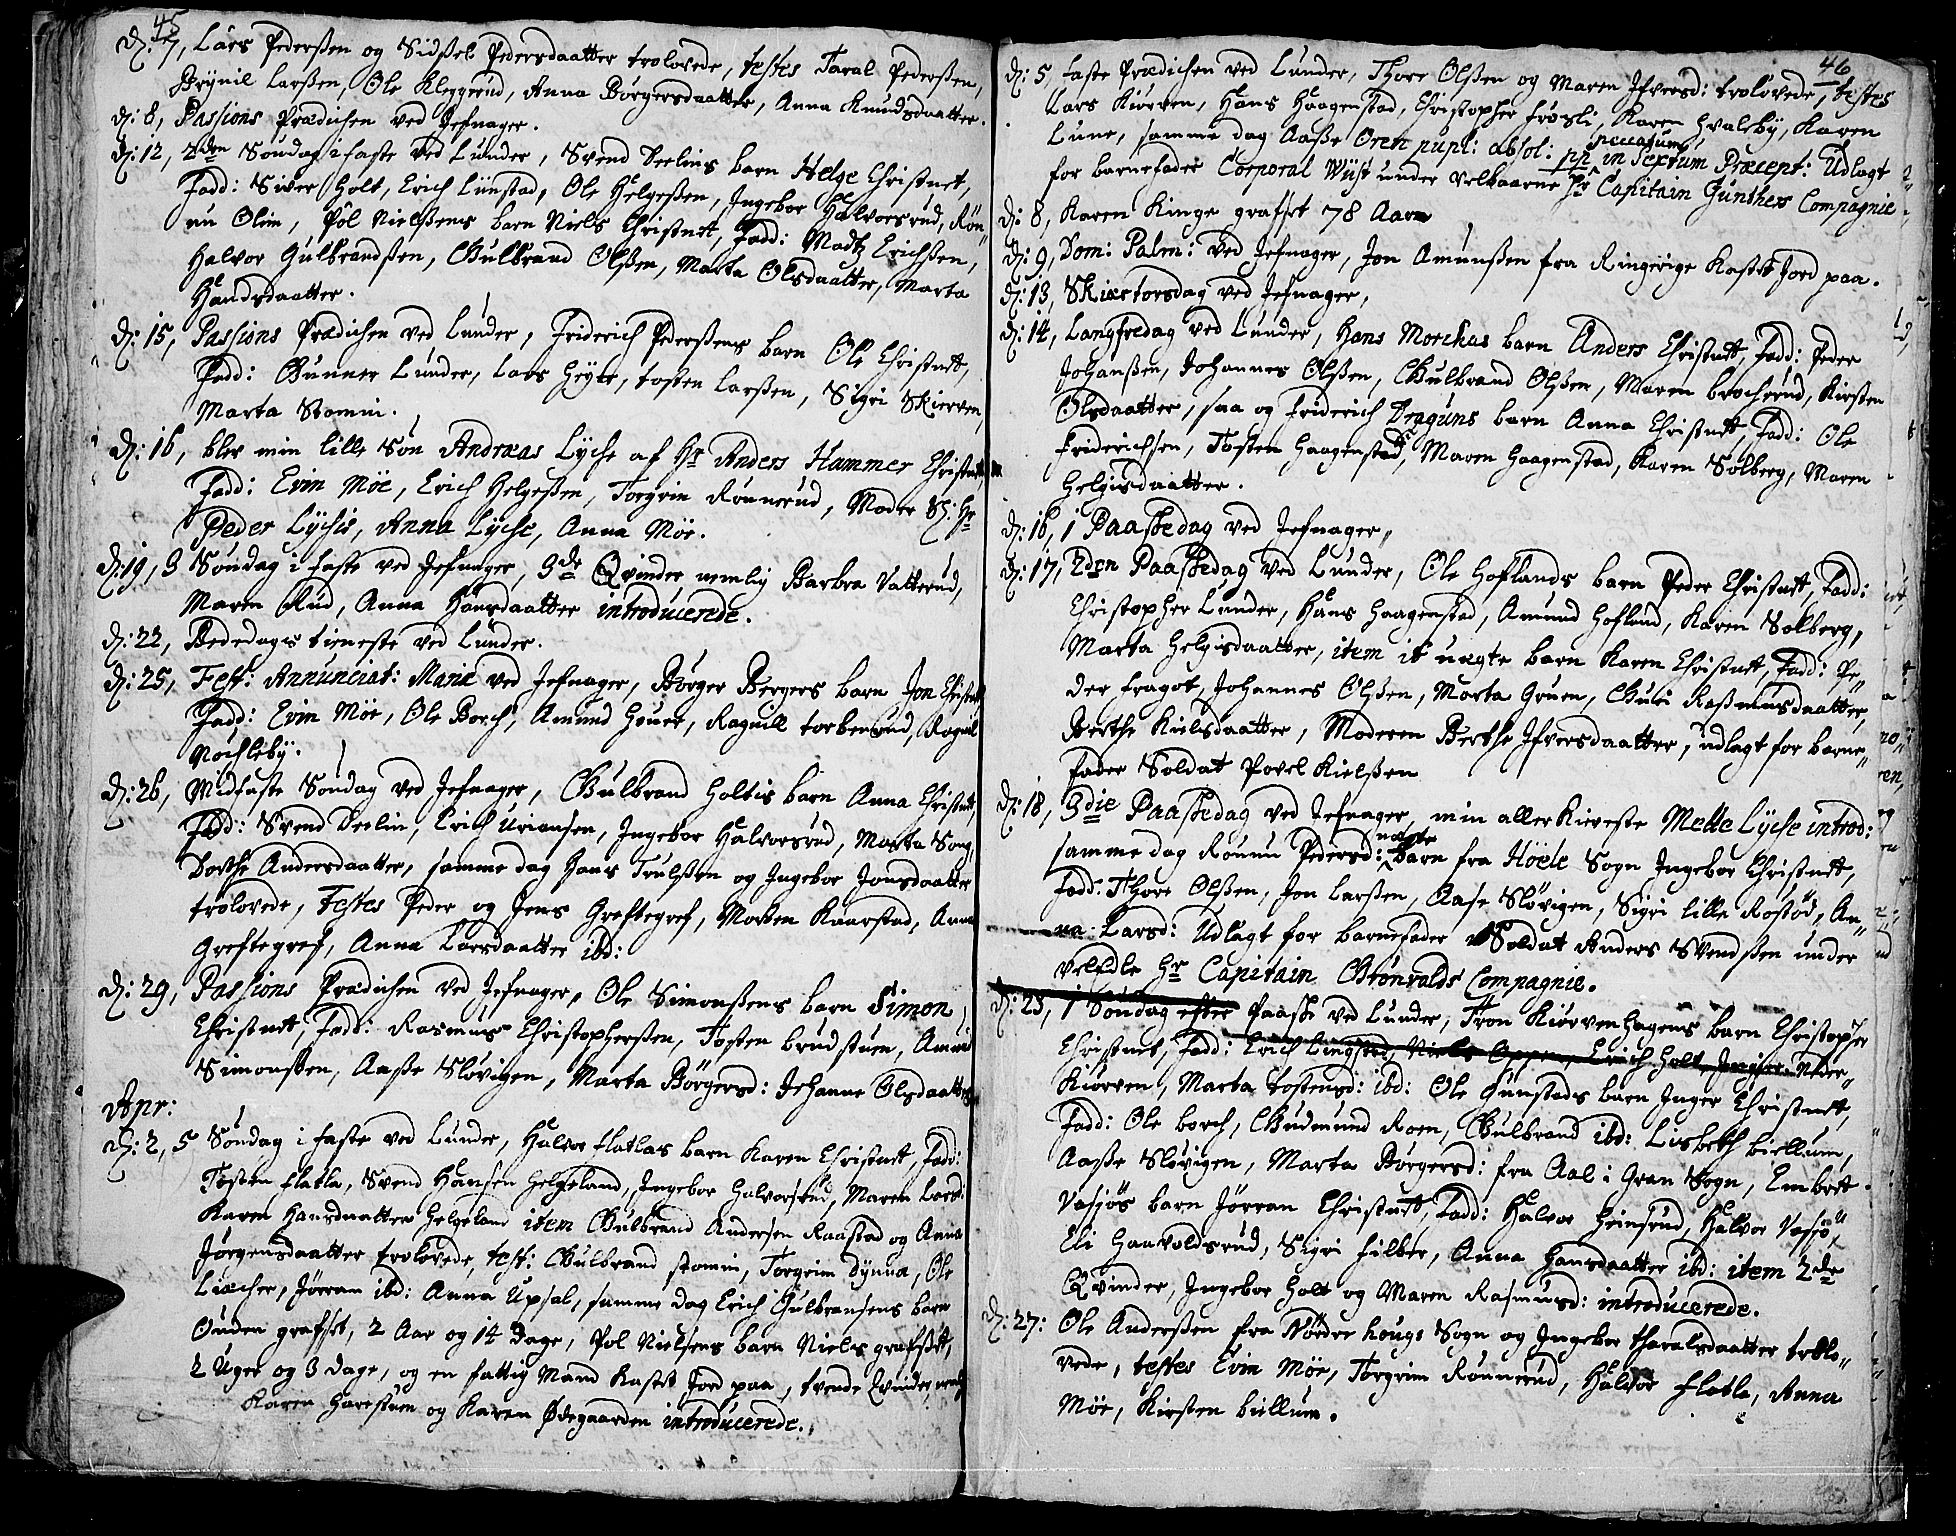 45
D: 7, Lars Pederßen og Sidßel Pedersdaatter trolovede, testes Taral Pederßen,
Brynil Larßen, Ole Kleggerud, Anna Börgersdaatter, Anna Knudsdaatter.
D: 8, Passions Prædichen ved Jefnager.
D: 12, 2den Söndag i faste ved Lunder, Svend Deelins barn Helge Christnet,
Fadd: Siver Holt, Erich Lünstad, Ole Helgeßen, Ingebor Halvorsrud, Rön„
nu Olim, Pol Nielßens barn Niels Christnet, Fadd: Madtz Erichßen,
Halvor Gulbrandßen, Gulbrand Olßen, Marta Olsdaatter, Marta
Handsdaatter.
D: 15, Passions Prædichen ved Lunder, Friderich Pederßens barn Ole Christnet,
Fadd: Gunner Lunder, Lars Heyer, Tosten Larßen, Sigri Skierven,
Marta Stomin.
D: 16, blev min lille Sön Andræas Lyche af Hr Anders Hammer Christnet
Fadd: Evin Möe, Erich Helgeßen, Torgrim Rönnerud, Moder S: Hr
Peder Lychis, Anna Lyche, Anna Möe.
D: 19, 3 Söndag i faste ved Jefnager, 3de Qvinder nemlig Barbra Vatterud,
Maren Rud, Anna Hansdaatter introducerede.
D: 22, Bededags tieneste ved Lunder.
D: 25, Fest: Annunciat: Mariæ ved Jefnager, Börger Bergers barn Jon Christnet
Fadd: Evin Möe, Ole Borch, Amund Houer, Ragnill Torbenrud, Ragnil
Nochleby.
D: 26, Midfaste Söndag ved Jefnager, Gulbrand Holtis barn Anna Christnet,
Fadd: Svend Deelin, Erich Uriansen, Ingebor Halvorsrud, Marta Sorg,
Dorthe Andersdaatter, samme dag Hans Trulßen og Ingebor Jonsdaatter
trolovede, Testes Peder og Jens Greftegref, Morten Kaarstad, Anna
Greftegref, Anna Larsdaatter ibd:
D: 29, Passions Prædichen ved Jefnager, Ole Simonßens barn Simon,
Christnet, Fadd: Rasmus Christopherßen, Tosten Brudstuen, Amund
Simonßen, Aaße Slövigen, Marta Börgersd: Johanne Olsdaatter
Apr:
D: 2, 5 Söndag i faste ved Lunder, Halvor Flatlas barn Karen Christnet, Fadd:
Tosten Flatla, Svend Hansen Helgeland, Ingebor Halvorsrud, Maren Larsd:
Karen Hansdaatter Helgeland item Gulbrand Andersen Raastad og Anna
Jörgensdaatter trolovede, test: Gulbrand Stomin, Torgrim Dynna, Ole
Liæcher, Jörran ibd: Anna Upsal, samme dag Erich Gulbransens barn
Ouden grafset, 2 Aar og 14 Dage, Pol Nielsens barn Niels grafset,
2 Uger og 3 dage, og en fattig Mand Kastet Jord paa, tvende Qvinder neml:
Karen Harestuen og Karen Ødegaarden introducerede.
46
D: 5, faste Prædichen ved Lunder, Thore Olßen og Maren Ifversd: trolovede, testes
Lars Kiörven, Hans Haagenstad, Christopher Frösli, Karen Hvalsby, Karen
Lune, samme dag Aaße Oren pupl: absol: pp peccatum in Sextum Præcept: Udlagt
for barnefader Corporal Wüst under Velbaarne Hr Capitain Günthers Compagnie.
D: 8, Karen Kinge grafset 78 Aar
D: 9, Dom: Palm: ved Jefnager, Jon Amunßen fra Ringerige Kastet Jord paa.
D: 13, Skiertorsdag ved Jefnager,
D: 14, Langfredag ved Lunder, Hans Morchas barn Anders Christnet, Fadd: Peder
Johanßen, Johannes Olßen, Gulbrand Olßen, Maren Brocherud, Kirsten
Olsdaatter, saa og Friderich Draguns barn Anna Christnet, Fadd: Ole
Friderichsen, Tosten Haagenstad, Maren Haagenstad, Karen Solberg, Maren
Helgisdaatter.
D: 16, 1 Paaskedag ved Jefnager,
D: 17, 2den Paaskedag ved Lunder, Ole Hoflands barn Peder Christnet, Fadd:
Christopher Lunder, Hans Haagenstad, Amund Hoflund, Karen Solberg,
Marta Helgisdaatter, item it uægte barn Karen Christnet, Fadd: Pe„
der Fragot, Johannes Olßen, Marta Gruen, Guri Rasmusdaatter,
Berthe Kielsdaatter, Moderen Berthe Ifversdaatter, udlagt for barne„
fader Soldat Povel Kielßen
D: 18, 3die Paaskedag ved Jefnager, min aller Kiereste Mette Lyche introd:
samme dag Rönnu Pedersd: uægte Barn fra Höele Sogn Ingebor Christnet,
Fadd: Thore Olßen, Jon Larßen, Aase Slövigen, Sigri lille Rostöd, An„
na Larsd: Udlagt for barnefader Soldat Anders Svendßen under
VelEdle Hr Capitain Grönvalds Compagnie.
D: 23, 1 Söndag efter Paaske ved Lunder, Tron Kiörvenhagens barn Christopher
Christnet, Fadd: Erich Lingsted, Niels Oppen, Erich Holt, Jngier Neder„
Kiörven, Marta Tostensd: ibd: Ole Gunstads barn Inger Christnet,
Fadd: Ole Borch, Gudmund Roen, Gulbrand ibd: Lisbeth Biellum,
Aaße Slövigen, Marta Börgersd: fra Aal i Gran Sogn, Embret
Vasjös barn Jörran Christnet, Fadd: Halvor Heinsrud, Halvor Vasjö,
Eli Haavoldsrud, Sigri Filber, Anna Hansdaatter ibd: item 2de
Qvinder, Ingebor Holt og Maren Rasmusd: introducerede.
D: 27: Ole Anderßen fra Nordre Hougs Sogn og Ingebor Tharalsdaatter trolo„
vede, testes Evin Möe, Torgrim Rönnerud, Halvor Flatla, Anna
Möe, Kirsten Biellum.